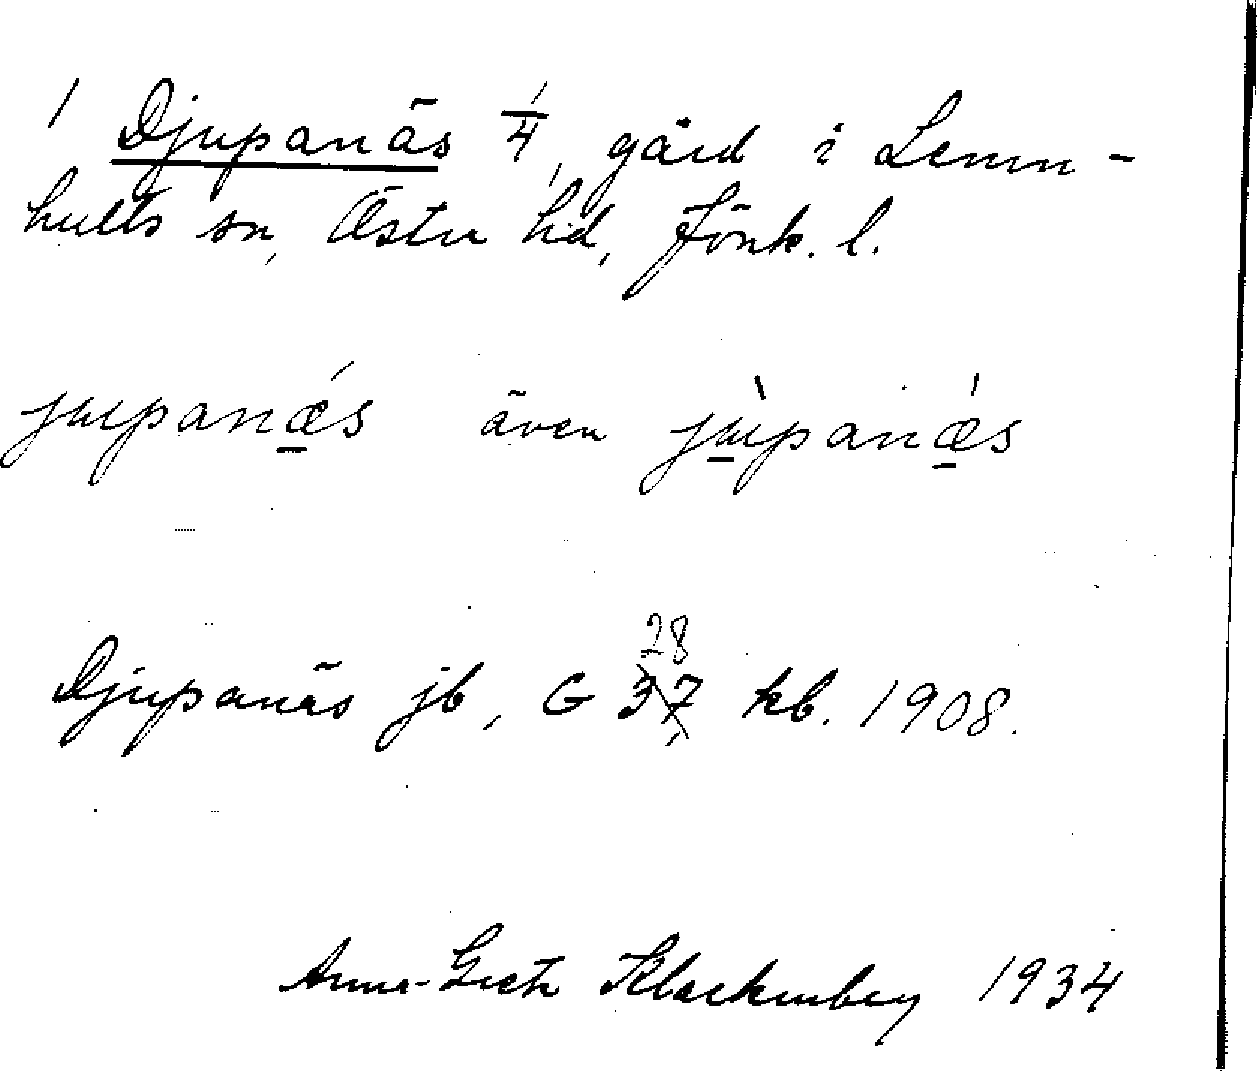 1 Djupanäs 1/4, gård i Lemn-
hults sn, Östra hd, Jönk. l.
jupanǽ̱s även jù̱panǽ̱s
28
Djupanäs jb, G 37 kb. 1908.
Anna-Greta Klackenberg 1934